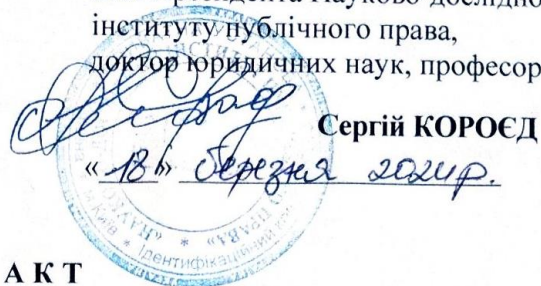 інституту публічного права,
доктор юридичних наук, професор
Сергій КОРОЄД
«18» березня 2024р.
АКТ